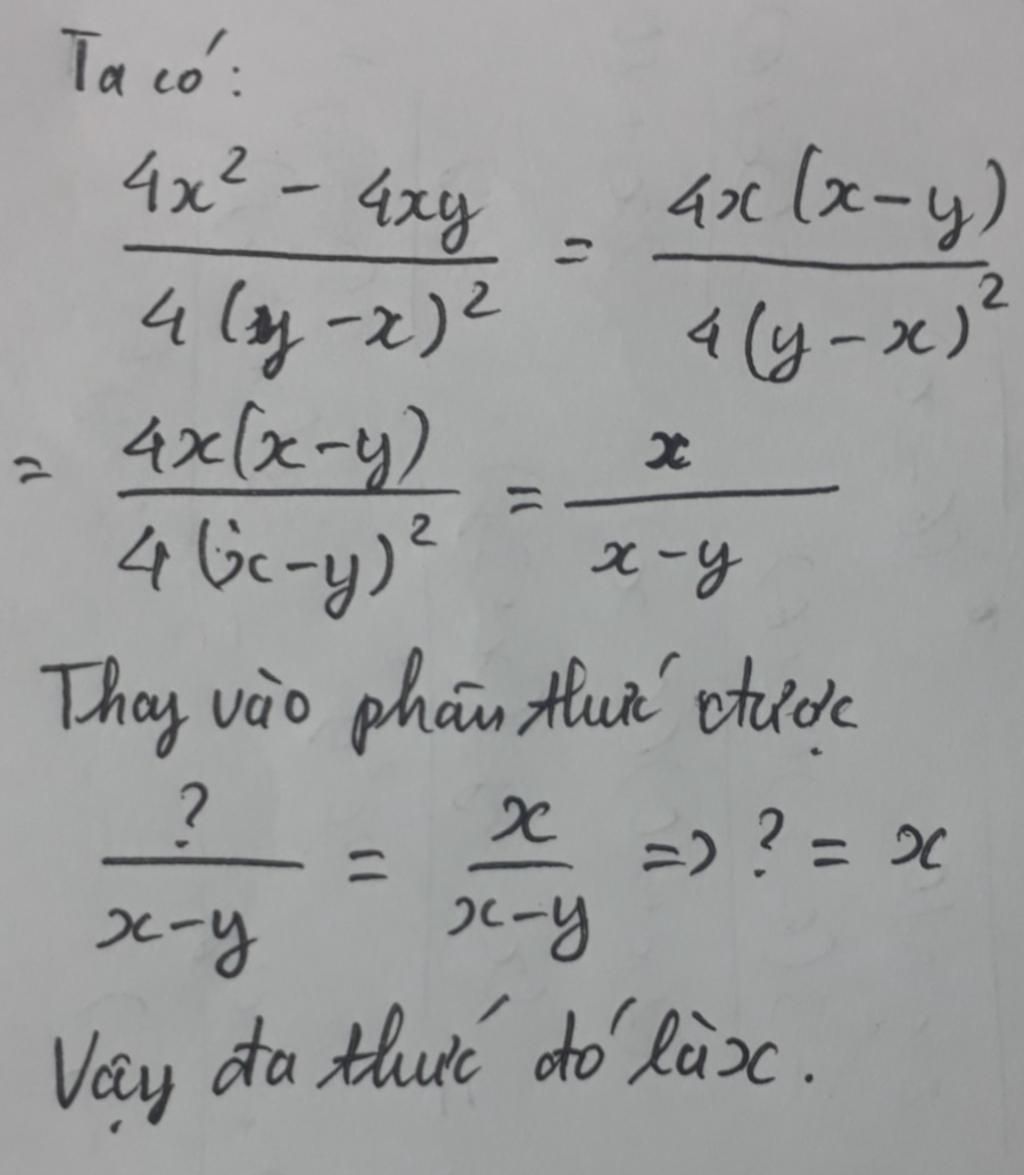 Ta có:
\frac{4x^2 - 4xy}{4(y-x)^2} = \frac{4x(x-y)}{4(y-x)^2}
= \frac{4x(x-y)}{4(x-y)^2} = \frac{x}{x-y}
Thay vào phân thức được
\frac{?}{x-y} = \frac{x}{x-y} => ? = x
Vậy đa thức đó là x.